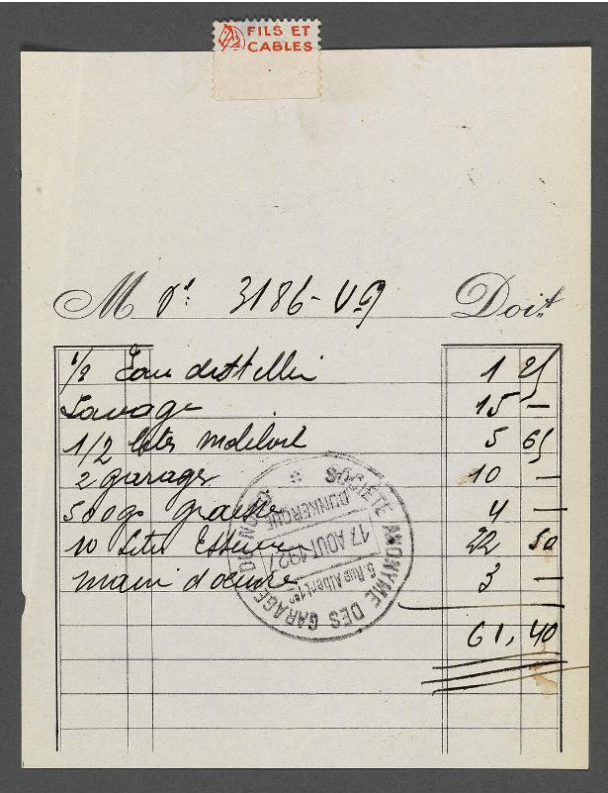 FILS ET
CABLES
M Vr: 3186-V9 Doit
1/2 Eau distillée 1 25
Lavage 15 —
1/2 Mobiloil 5 65
2 garages 10 —
500gr graisse 4 —
10 Litres Essence 22 50
main d'oeuvre 3 —
61,40
SOCIÉTÉ ANONYME DES GARAGES DU NORD
DUNKERQUE
17 AOUT 1927
5, Rue Albert 1er